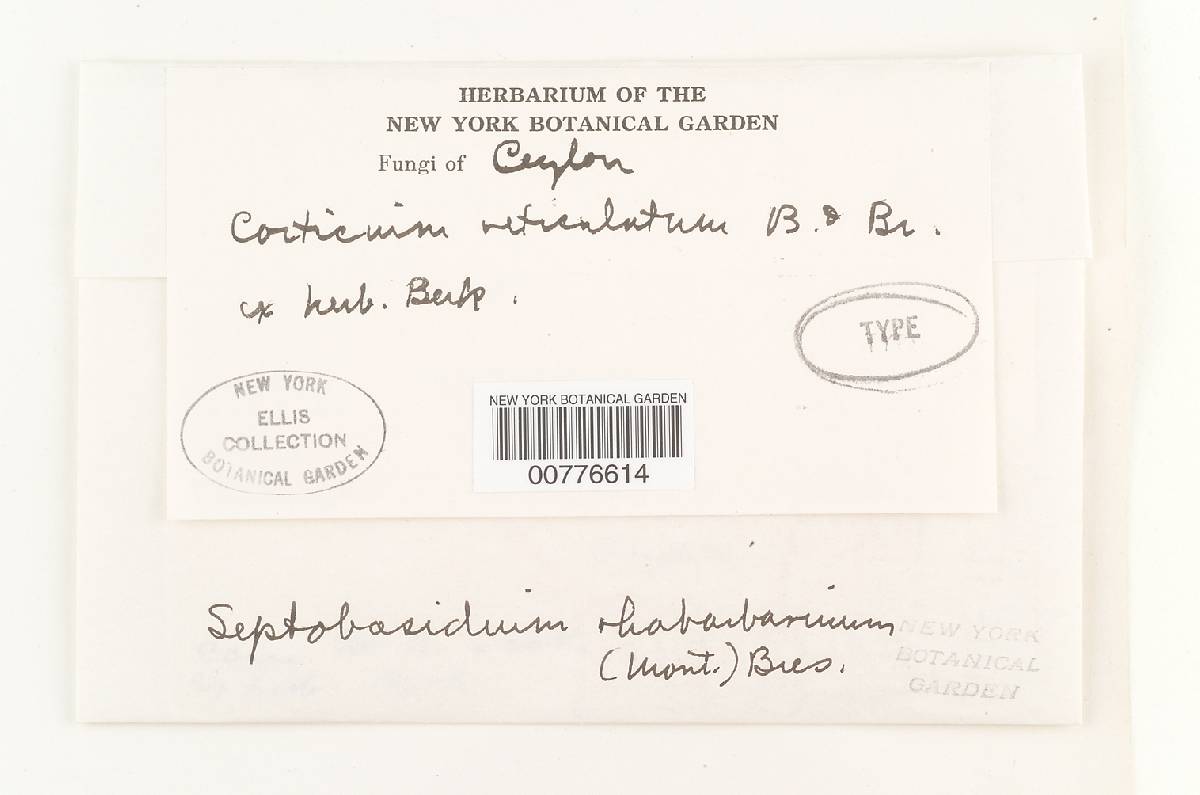 HERBARIUM OF THE
NEW YORK BOTANICAL GARDEN
Fungi of Ceylon
Corticium reticulatum B. & Br.
ex herb. Berk.
TYPE
NEW YORK
ELLIS
COLLECTION
BOTANICAL GARDEN
NEW YORK BOTANICAL GARDEN
00776614
Septobasidium rhabarbarinum
(Mont.) Bres.
NEW YORK
BOTANICAL
GARDEN